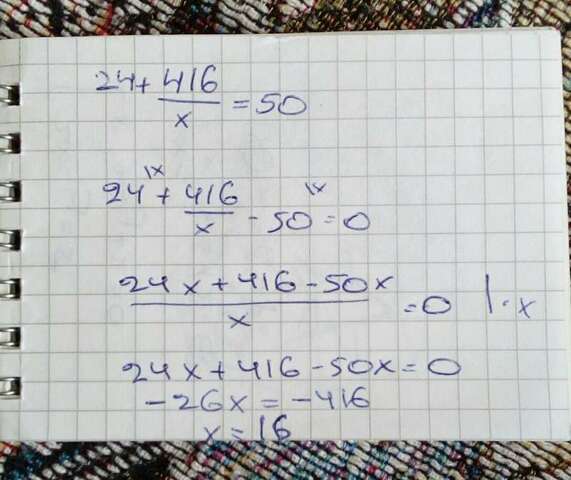 24 + 416/x = 50
24 |x + 416/x - 50 |x = 0
(24x + 416 - 50x)/x = 0 | · x
24x + 416 - 50x = 0
-26x = -416
x = 16